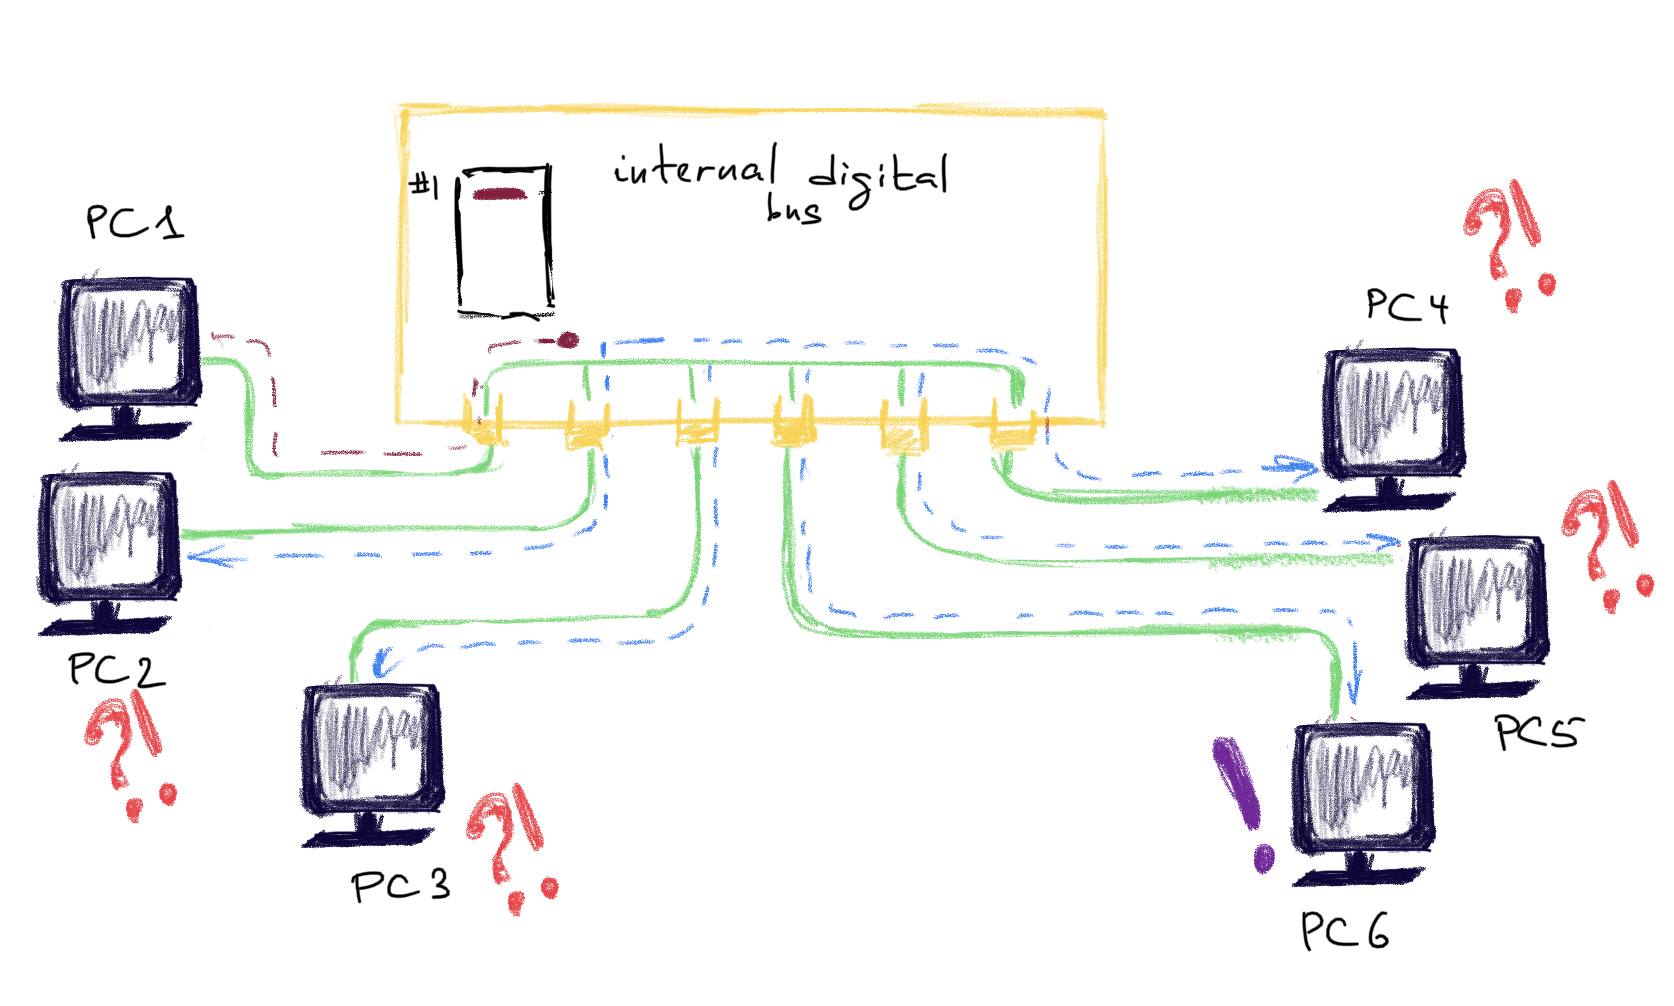 internal digital
bus
#1
PC1
PC2
PC3
PC4
PC5
PC6
?!
?!
?!
?!
!